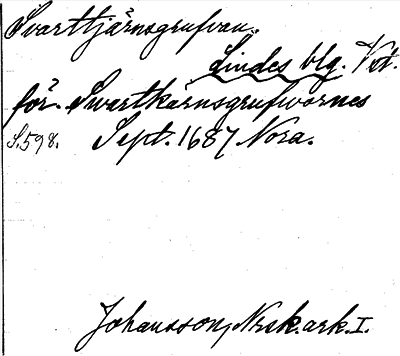 Svarttjärnsgrufvan.
Lindes blg. Vet.
för. Swartkärnsgrufwornes
S.598. Sept. 1687. Nora.
Johansson, Nrsk. ark. I.